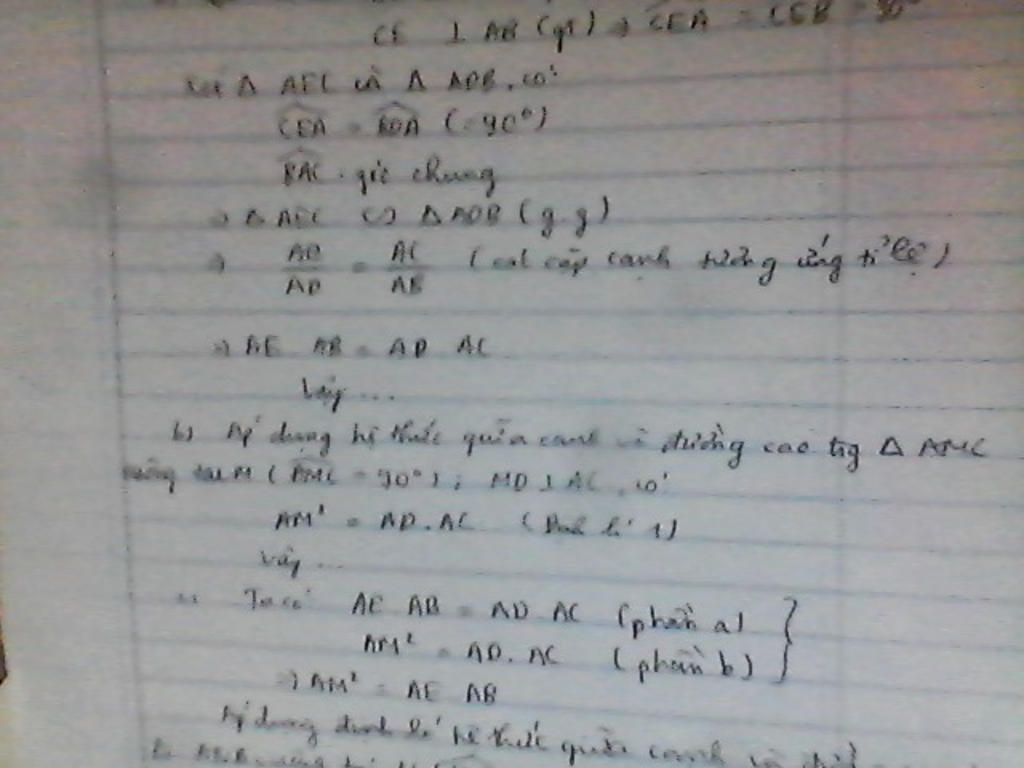 CE ⊥ AB (gt) ⇒ CEA = CEB = 90°
Xét Δ AEC và Δ ADB, có:
CEA = BDA (= 90°)
BAC: góc chung
⇒ Δ AEC ∽ Δ ADB (g.g)
⇒ AE/AD = AC/AB ( cặp cạnh tương ứng tỉ lệ)
⇒ AE AB = AD AC
Vậy ...
b) Áp dụng hệ thức giữa cạnh và đường cao trg Δ AMC
vuông tại M (AMC = 90°); MD ⊥ AC, có:
AM² = AD.AC (Định lí 1)
Vậy ...
Ta có AE AB = AD AC (phần a)
AM² = AD.AC (phần b)
⇒ AM² = AE AB
Áp dụng định lí hệ thức giữa cạnh và